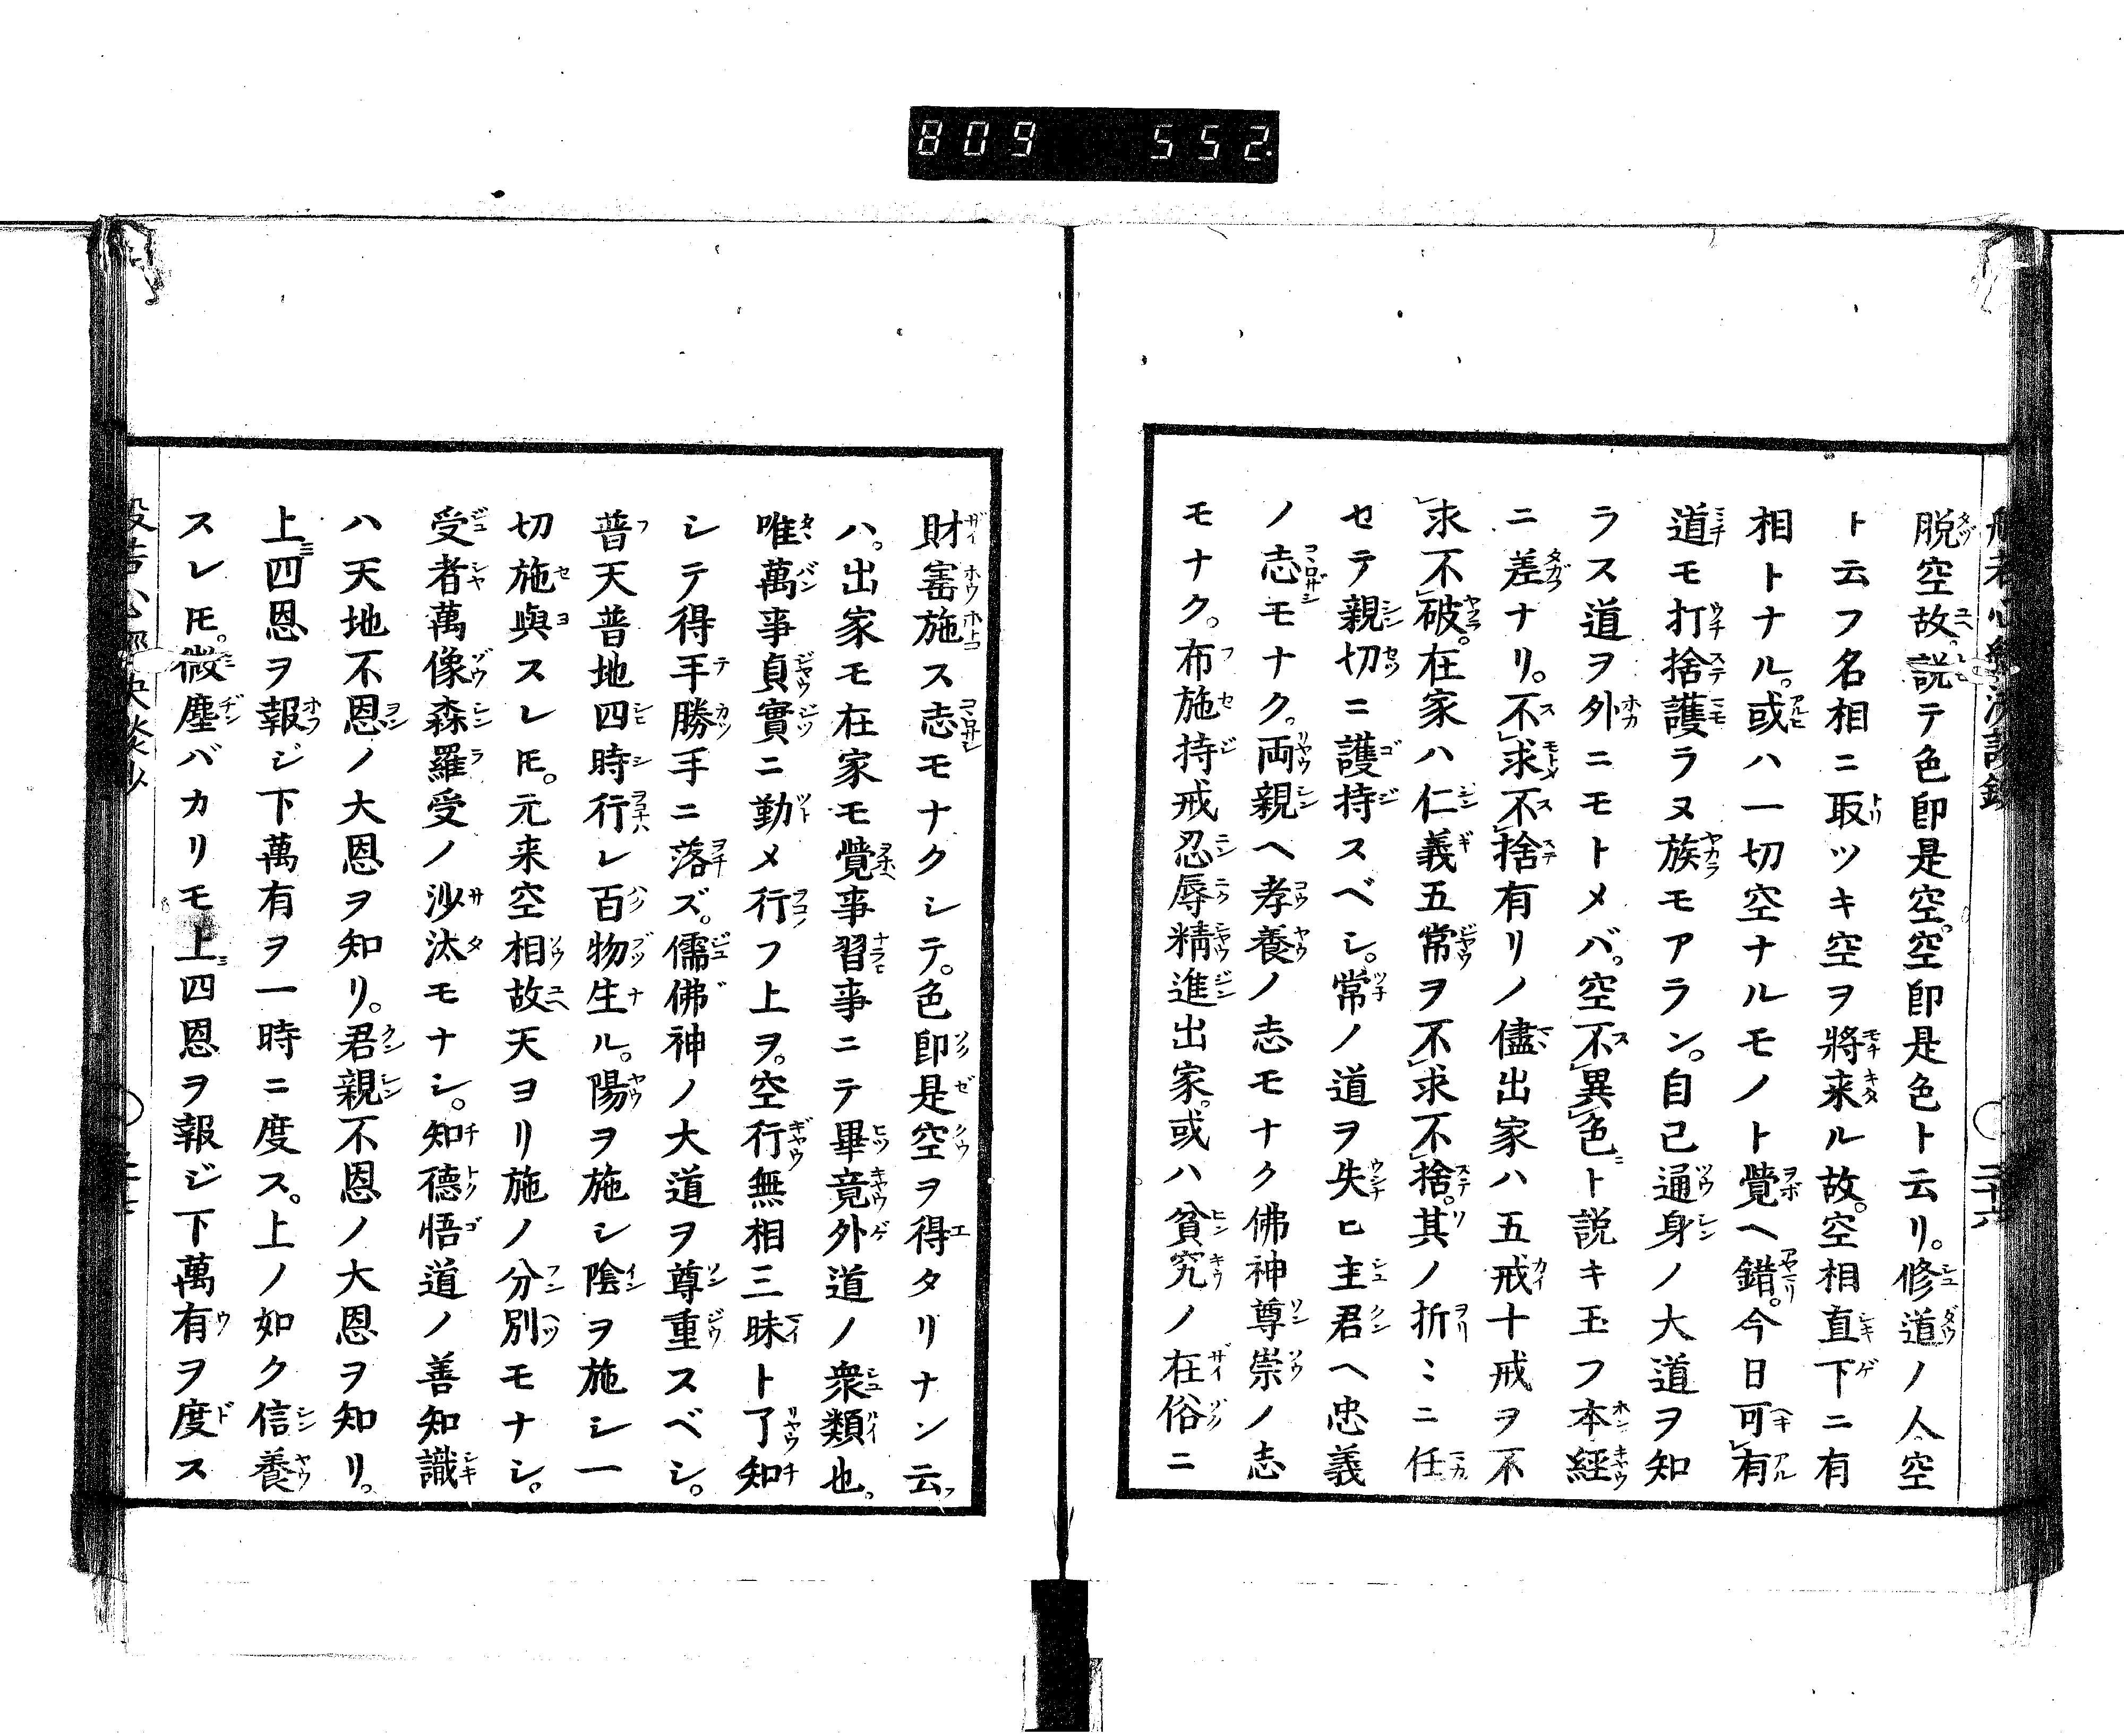 809 552
脱空故。説テ色卽是空。空卽是色ト云リ。修道ノ人空
ト云フ名相ニ取ツキ空ヲ將来ル故。空相直下ニ有
相トナル。或ハ一切空ナルモノト覺ヘ錯。今日可有
道モ打捨護ラヌ族モアラン。自己通身ノ大道ヲ知
ラス道ヲ外ニモトメバ。空不異色ト説キ玉フ本経
ニ差ナリ。不求不捨有リノ儘出家ハ五戒十戒ヲ不
求不破。在家ハ仁義五常ヲ不求不捨。其ノ折〻ニ任
セテ親切ニ護持スベシ。常ノ道ヲ失ヒ主君ヘ忠義
ノ志モナク。両親ヘ孝養ノ志モナク佛神尊崇ノ志
モナク。布施持戒忍辱精進出家。或ハ貧究ノ在俗ニ
財寚施ス志モナクシテ。色卽是空ヲ得タリナン云
ハ。出家モ在家モ覺事習事ニテ畢竟外道ノ衆類也。
唯萬事貞實ニ勤メ行フ上ヲ。空行無相三昧ト了知
シテ得手勝手ニ落ズ。儒佛神ノ大道ヲ尊重スベシ。
普天普地四時行レ百物生ル。陽ヲ施シ陰ヲ施シ一
切施與スレ𪜈。元来空相故天ヨリ施ノ分別モナシ。
受者萬像森羅受ノ沙汰モナシ。知德悟道ノ善知識
ハ天地不恩ノ大恩ヲ知リ。君親不恩ノ大恩ヲ知リ。
上四恩ヲ報ジ下萬有ヲ一時ニ度ス。上ノ如ク信養
スレ𪜈。微塵バカリモ上四恩ヲ報ジ下萬有ヲ度ス